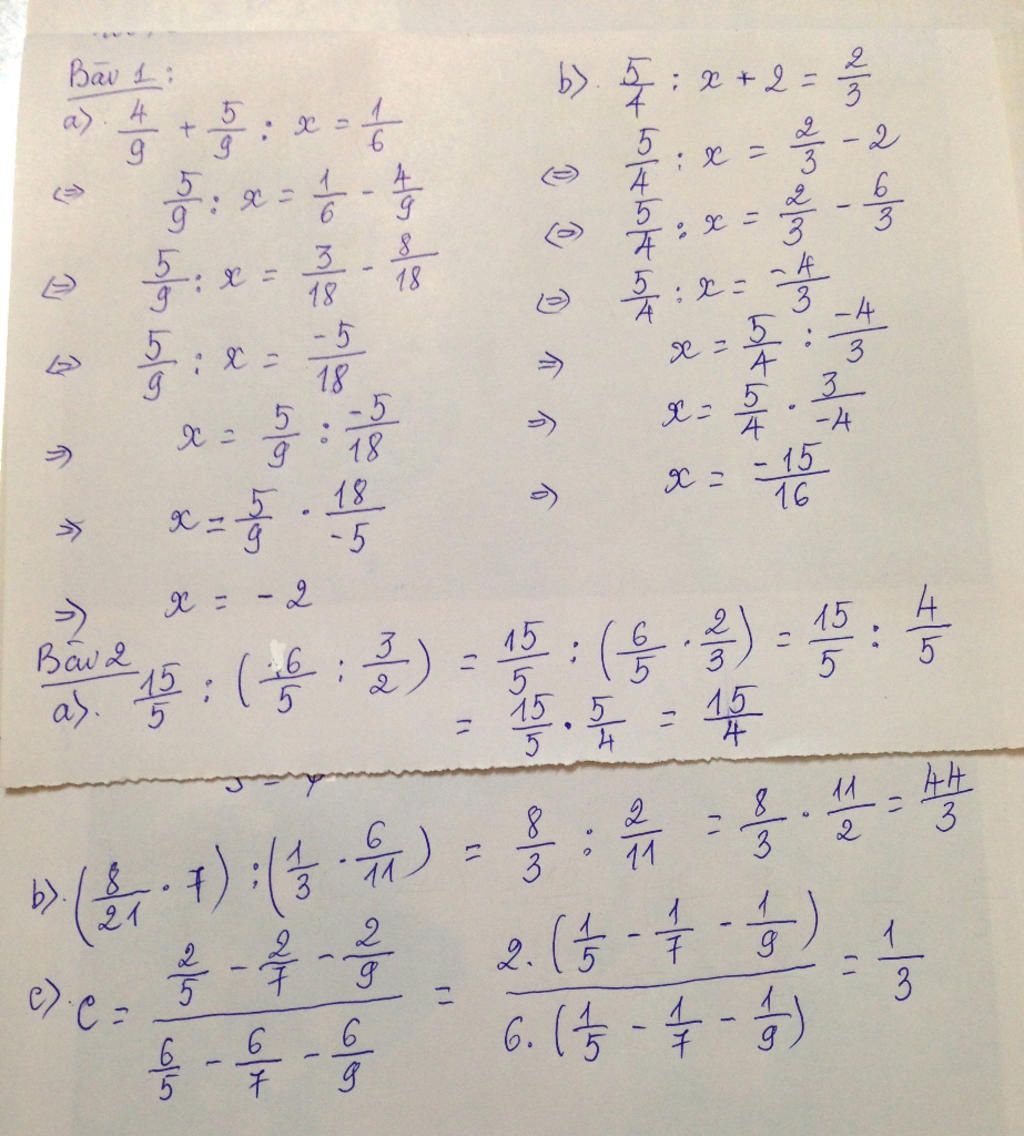 Bài 1:
a). 4/9 + 5/9 : x = 1/6
⇔ 5/9 : x = 1/6 - 4/9
⇔ 5/9 : x = 3/18 - 8/18
⇔ 5/9 : x = -5/18
⇒ x = 5/9 : -5/18
⇒ x = 5/9 . 18/-5
⇒ x = - 2
b). 5/4 : x + 2 = 2/3
⇔ 5/4 : x = 2/3 - 2
⇔ 5/4 : x = 2/3 - 6/3
⇔ 5/4 : x = -4/3
⇒ x = 5/4 : -4/3
⇒ x = 5/4 . 3/-4
⇒ x = -15/16
Bài 2
a). 15/5 : (6/5 : 3/2) = 15/5 : (6/5 . 2/3) = 15/5 : 4/5
= 15/5 . 5/4 = 15/4
b). (8/21 . 7) : (1/3 . 6/11) = 8/3 : 2/11 = 8/3 . 11/2 = 44/3
c). C = (2/5 - 2/7 - 2/9)/(6/5 - 6/7 - 6/9) = 2.(1/5 - 1/7 - 1/9)/6.(1/5 - 1/7 - 1/9) = 1/3